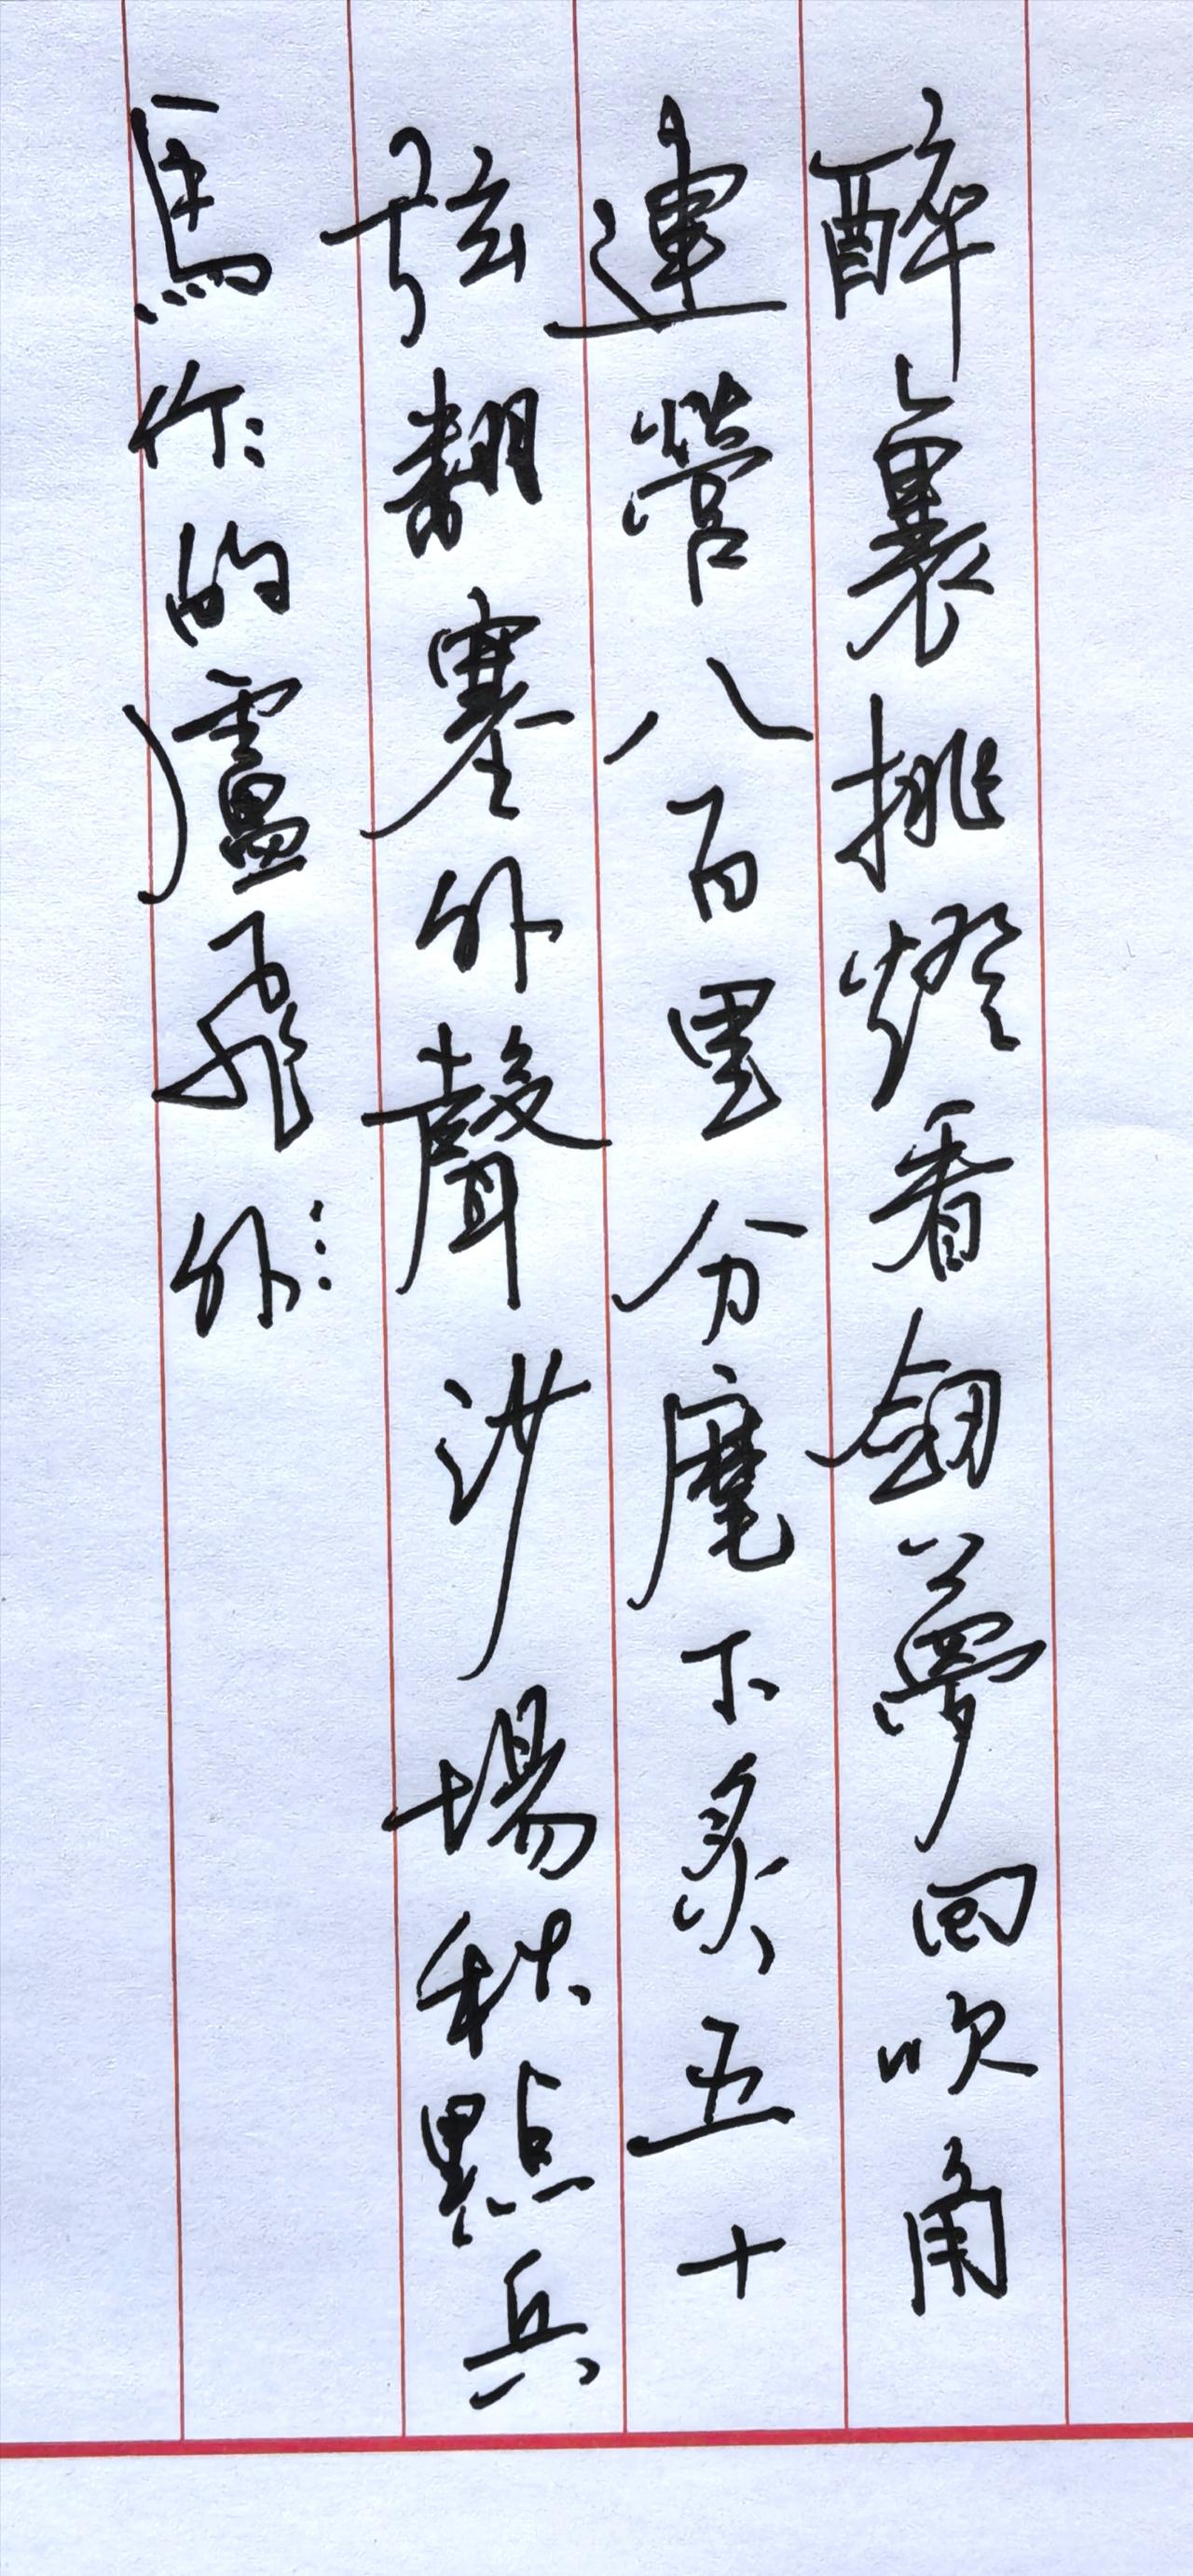 醉裏挑燈看釼夢回吹角
連營八百里分麾下炙五十
弦翻塞外聲沙場秋點兵
馬作的盧飛快